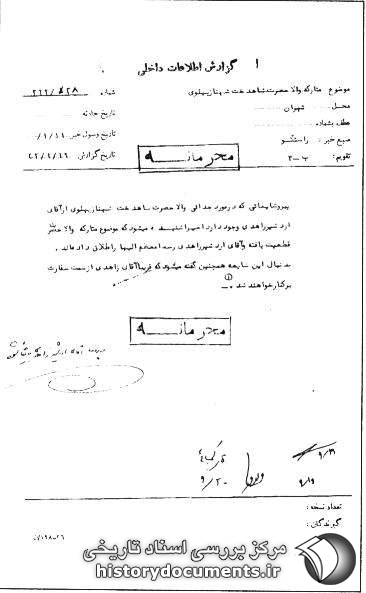 گزارش اطلاعات داخلی
موضوع متارکه والاحضرت شاهدخت شهناز پهلوی
شماره ۲۱۱/۸۲۸
محل تهران
تاریخ حادثه
عطف بشماره
تاریخ وصول خبر ۱/۱۱/
منبع خبر : راستگو
تاریخ گزارش
تقویم : ب-۳
محرمانه
پیرو شایعاتی که در مورد جدائی والا حضرت شاهدخت شهناز پهلوی از آقای
اردشیر زاهدی وجود دارد اخیرا شنیده میشود که موضوع متارکه والا حضرت
قطعیت یافته و آقای اردشیر زاهدی رسما معظم الیها را طلاق داده اند .
بدنبال این شایعه همچنین گفته میشود که قریبا آقای زاهدی از سمت سفارت
برکنار خواهند شد .
محرمانه
۹/۱۹
۹/۲۰
تعداد نسخه :
گیرندگان :
مرکز بررسی اسناد تاریخی
historydocuments.ir